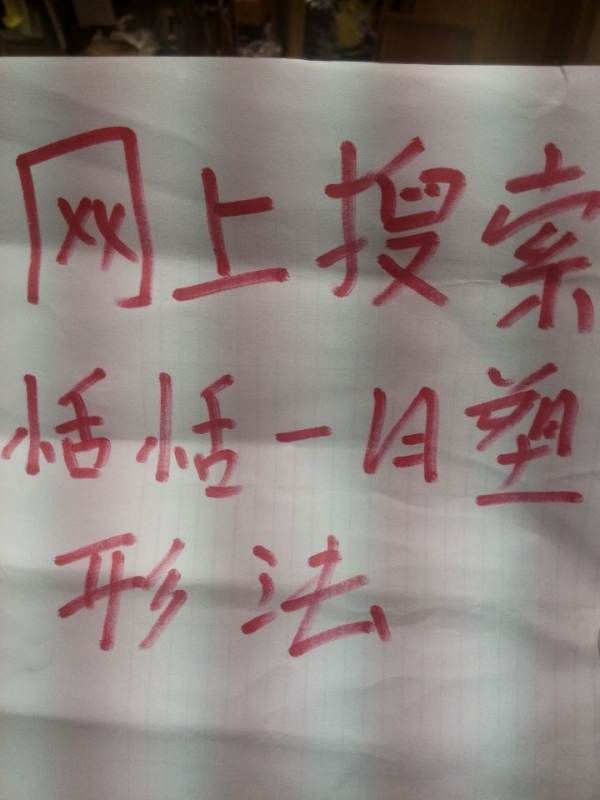 网上搜索
恬恬一月塑
形法